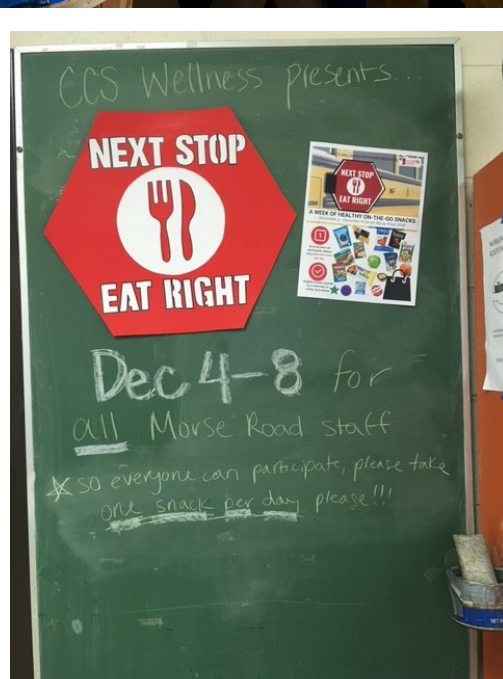 CCS Wellness presents...
NEXT STOP
EAT RIGHT
NEXT STOP
EAT RIGHT
A WEEK OF HEALTHY ON-THE-GO SNACKS
Dec 4-8 for
all Morse Road staff
so everyone can participate, please take
one snack per day please!!!